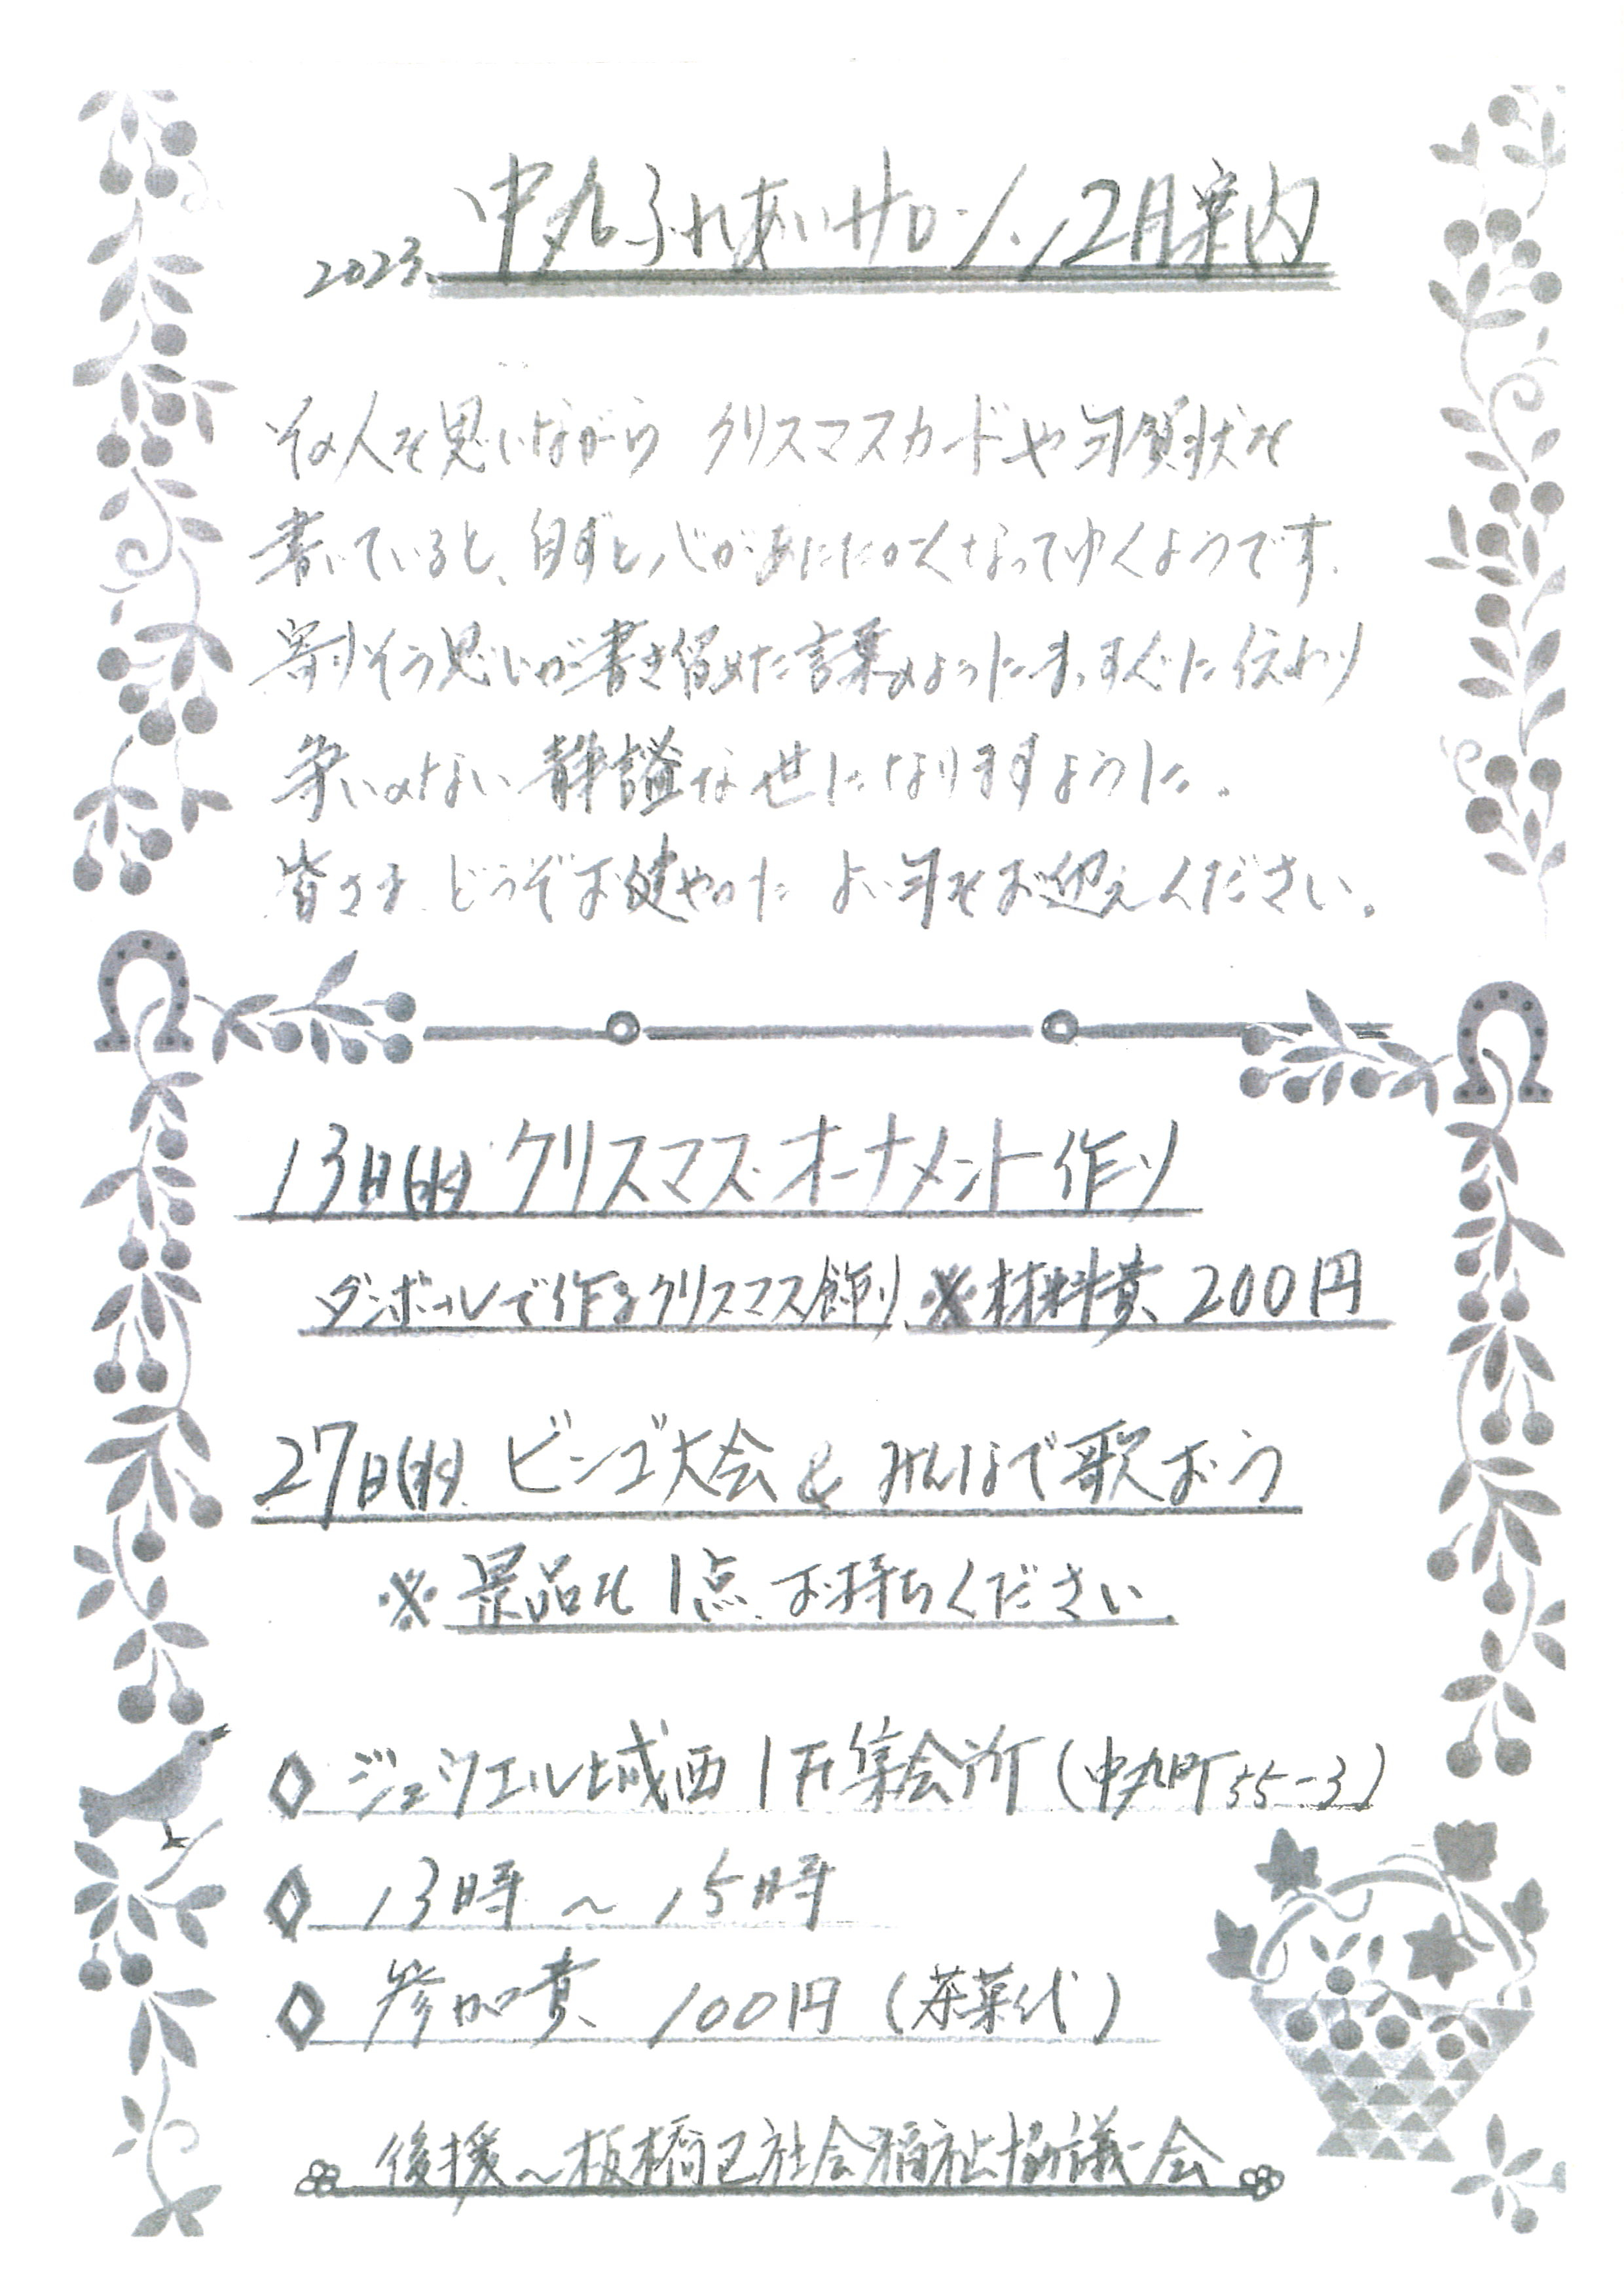 2023. 中丸ふれあいサロン 12月案内
その人を思いながら クリスマスカードや年賀状を
書いていると、自ずと心があたたかくなってゆくようです。
寄りそう思いが書き留めた言葉のようにまっすぐに伝わり
争いのない静謐な世になりますように。
皆さま どうぞお健やかに よい年をお迎えください。
13日(水) クリスマス・オーナメント作り
ダンボールで作るクリスマス飾り ※材料費 200円
27日(水) ビンゴ大会 & みんなで歌おう
※景品を1点 お持ちください
◇ ジェツエル城西1F集会所(中丸町55-3)
◇ 13時 ~ 15時
◇ 参加費 100円 (茶菓代)
後援~板橋区社会福祉協議会